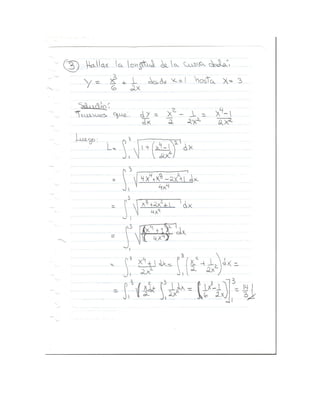 ③ Hallar la longitud de la curva dada:
y = x³/6 + 1/2x desde x=1 hasta x=3
Solución:
Tenemos que dy/dx = x²/2 - 1/2x² = x⁴-1/2x²
Luego
L = ∫₁³ √(1+(x⁴-1/2x²)²) dx
= ∫₁³ √(4x⁴+x⁸-2x⁴+1/4x⁴) dx
= ∫₁³ √(x⁸+2x⁴+1/4x⁴) dx
= ∫₁³ √((x⁴+1)²/4x⁴) dx
= ∫₁³ x⁴+1/2x² dx = ∫₁³ (x²/2 + 1/2x²) dx =
= ∫₁³ x²/2 dx ∫₁³ 1/2x² dx = [1/6 x³ - 1/2x]₁³ = 14/3